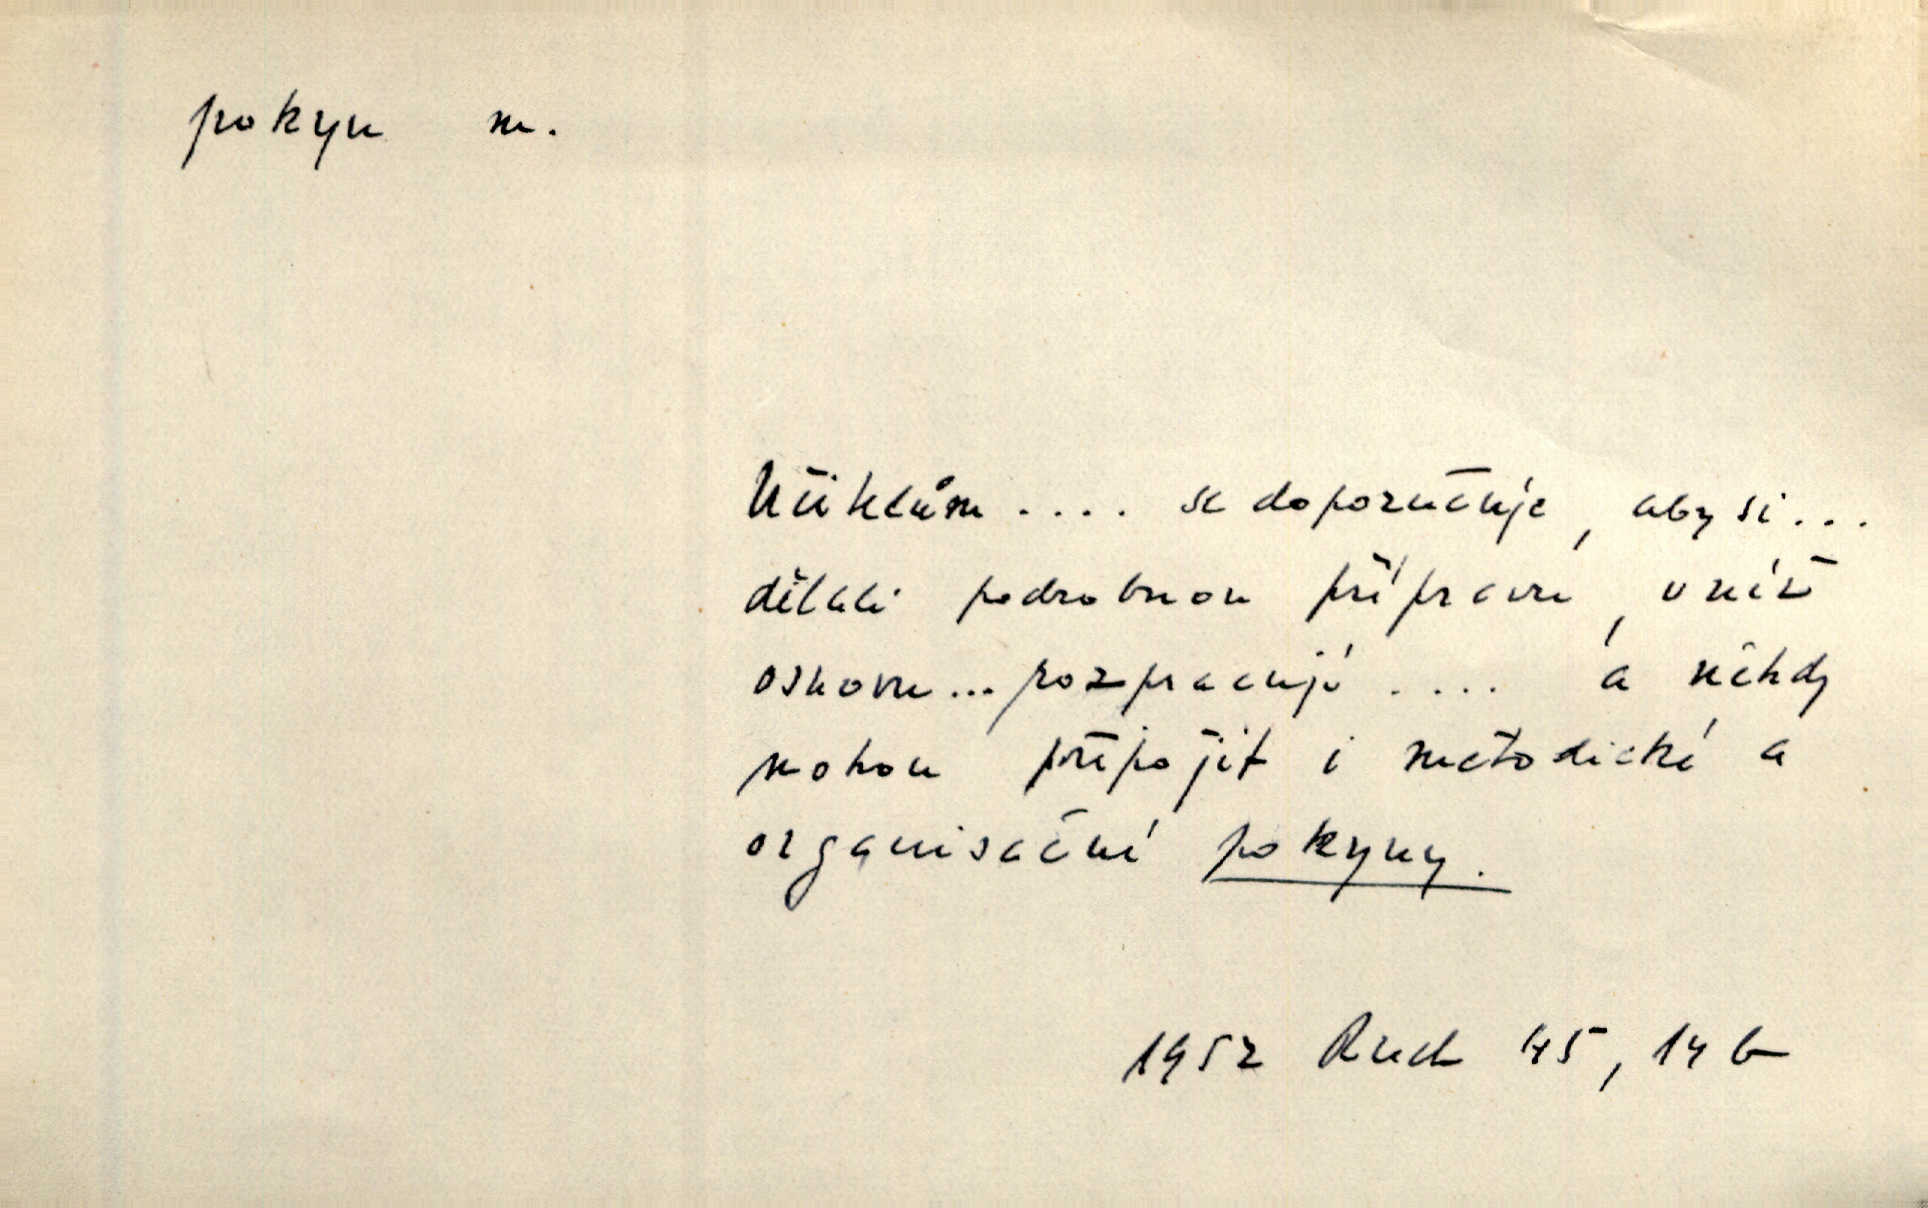 pokyn m.
Učitelům .... se doporučuje, aby si...
dělali podrobnou přípravu, v níž
osnovu... rozpracují .... a někdy
mohou připojit i metodické a
organisační pokyny.
1952 Rud 45, 14 b